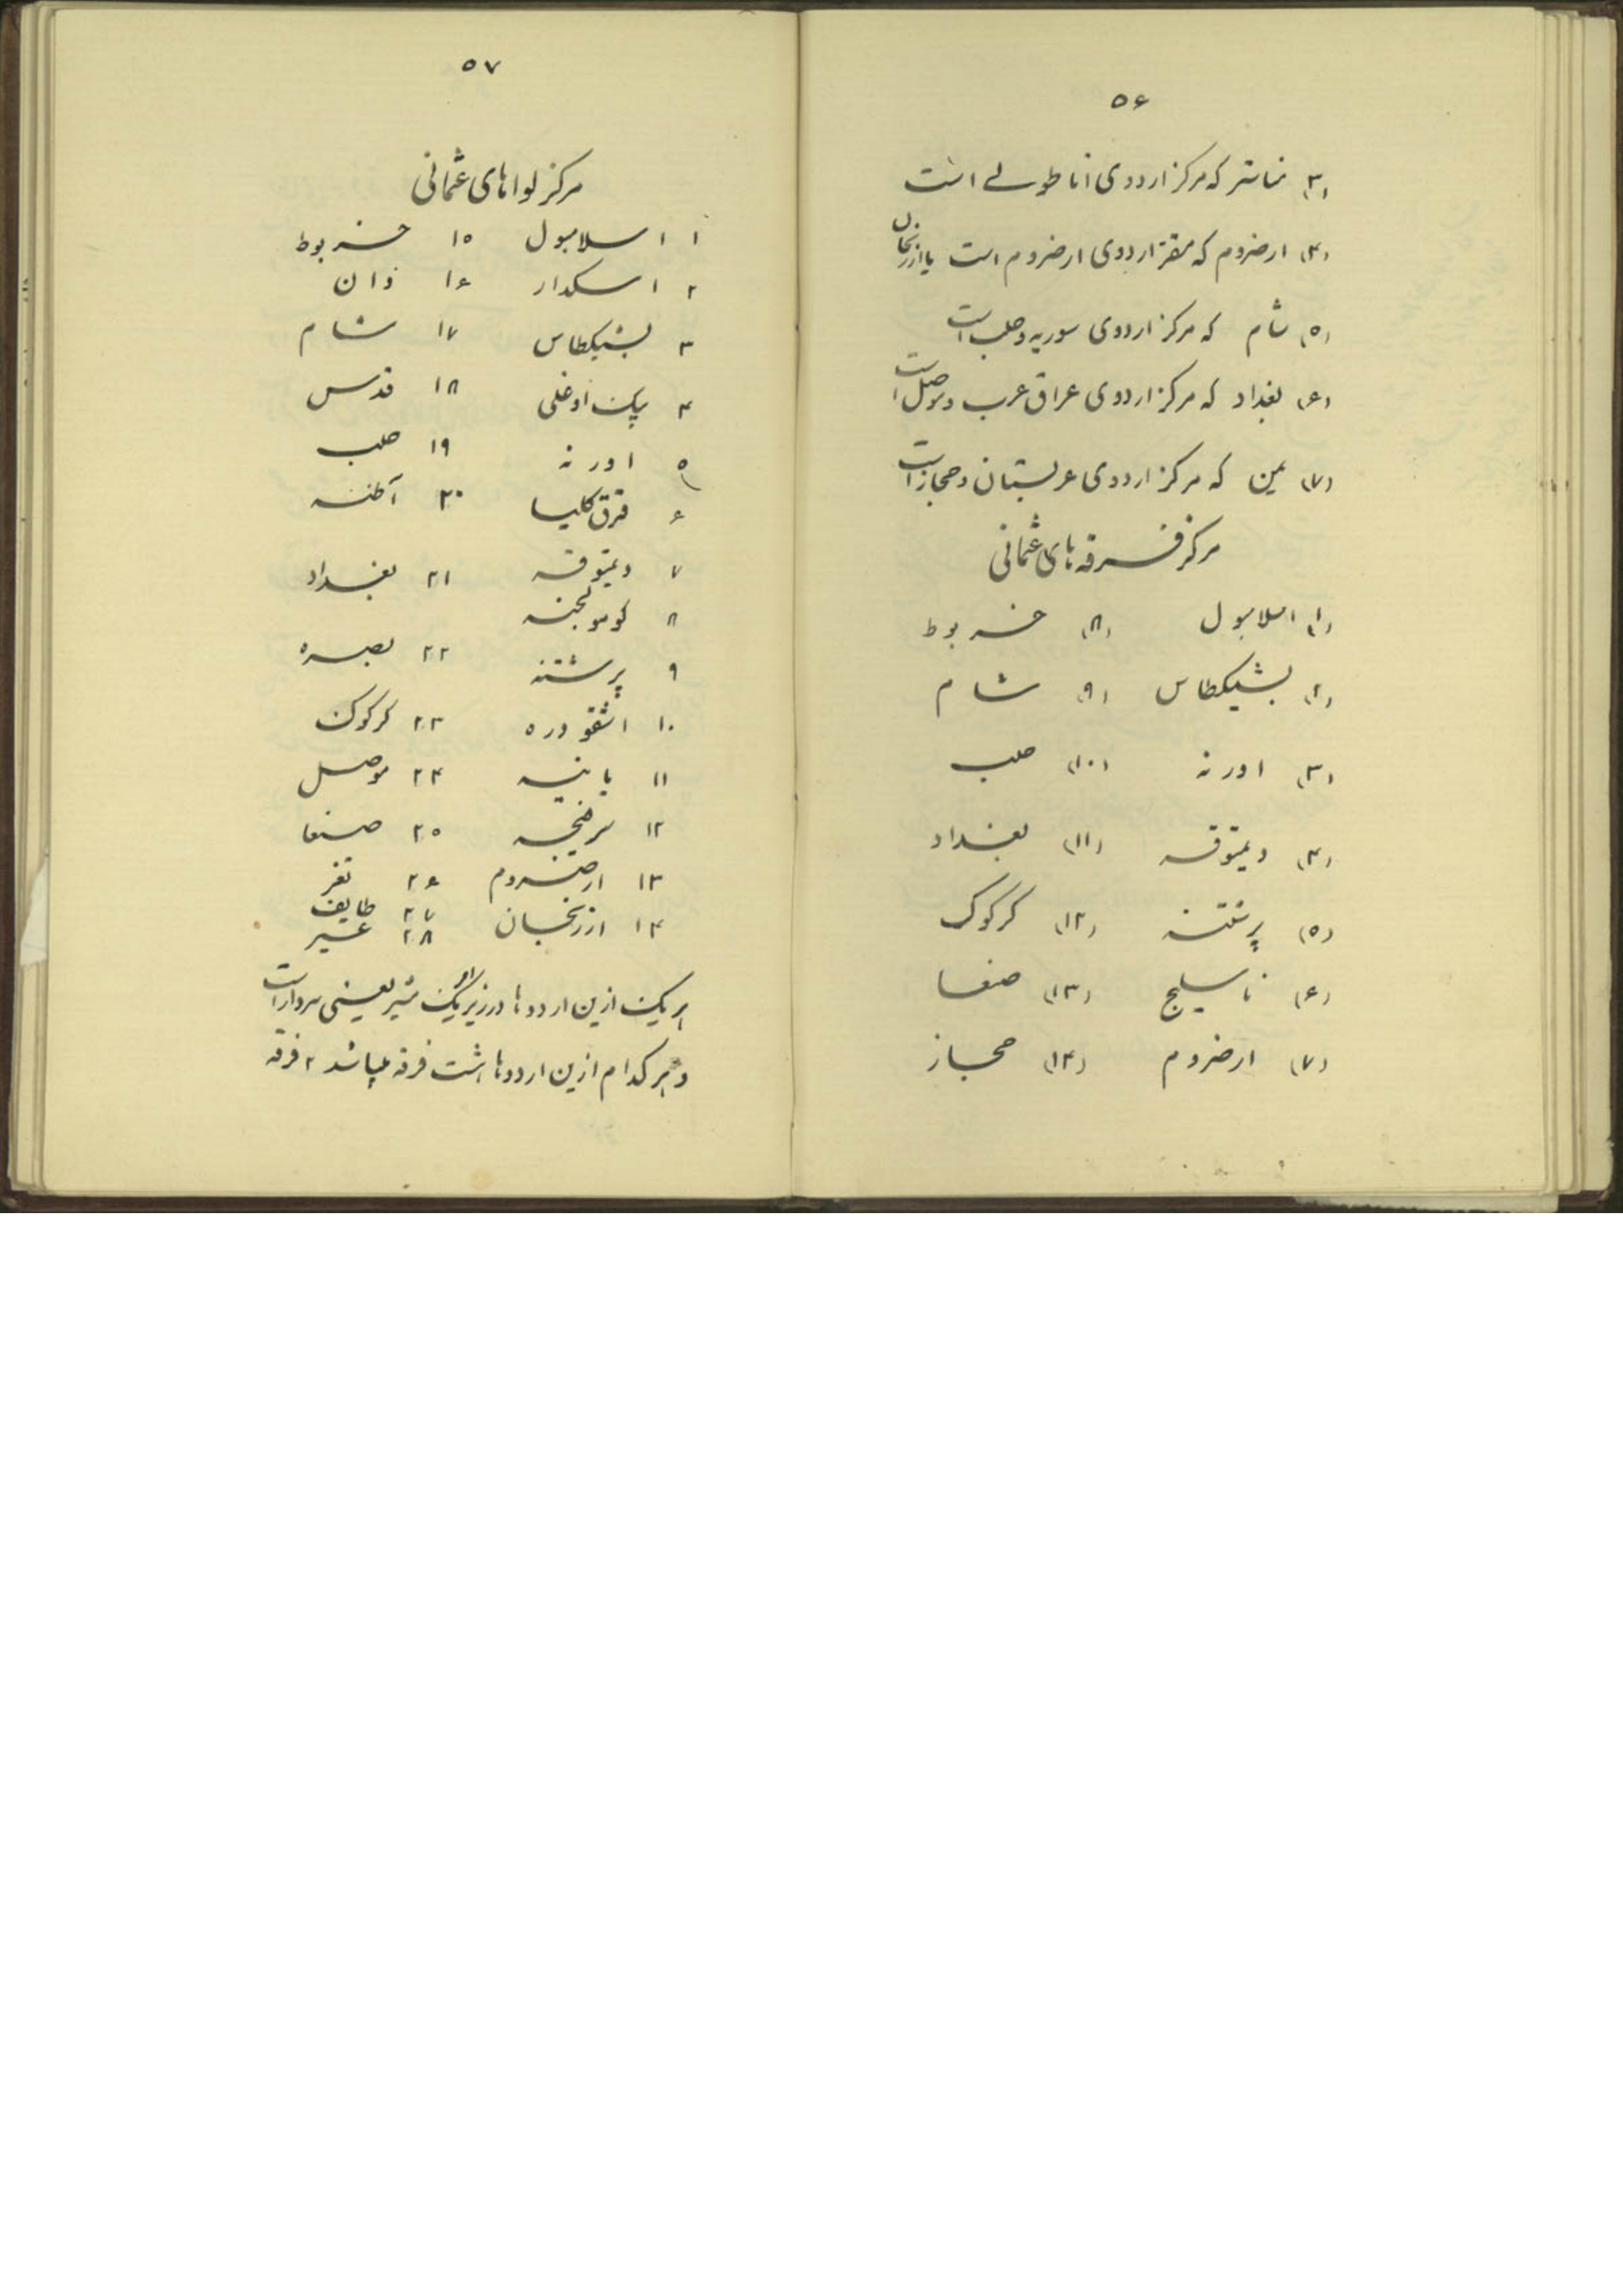 ۵۶
(۳) مناستر که مرکز اردوی اناطولی است
(۴) ارضروم که مقر اردوی ارضروم است یا ارزنجان
(۵) شام که مرکز اردوی سوریه و حلب است
(۶) بغداد که مرکز اردوی عراق عرب و موصل است
(۷) یمن که مرکز اردوی عربستان و حجاز است
مرکز فرقه‌های عثمانی
(۱) اسلامبول (۸) خربوط
(۲) بشیکطاس (۹) شام
(۳) اورنه (۱۰) حلب
(۴) دیمتوقه (۱۱) بغداد
(۵) پرشتنه (۱۲) کرکوک
(۶) ناسلیج (۱۳) صنعا
(۷) ارضروم (۱۴) حجاز
۵۷
مرکز لواهای عثمانی
۱ اسلامبول ۱۵ خربوط
۲ اسکدار ۱۶ وان
۳ بشیکطاس ۱۷ شام
۴ بیک اوغلی ۱۸ قدس
۵ اورنه ۱۹ حلب
۶ قرق کلیسا ۲۰ آطنه
۷ دیمتوقه ۲۱ بغداد
۸ کومولجنه
۹ پرشتنه ۲۲ بصره
۱۰ اشقودره ۲۳ کرکوک
۱۱ یانیه ۲۴ موصل
۱۲ سرفیجه ۲۵ صنعا
۱۳ ارضروم ۲۶ تعز
۱۴ ارزنجان ۲۷ طایف
۲۸ عسیر
هر یک ازین اردوها در زیر یک مشیر یعنی سردار است
و هر کدام ازین اردوها هشت فرقه میباشد ۲ فرقه